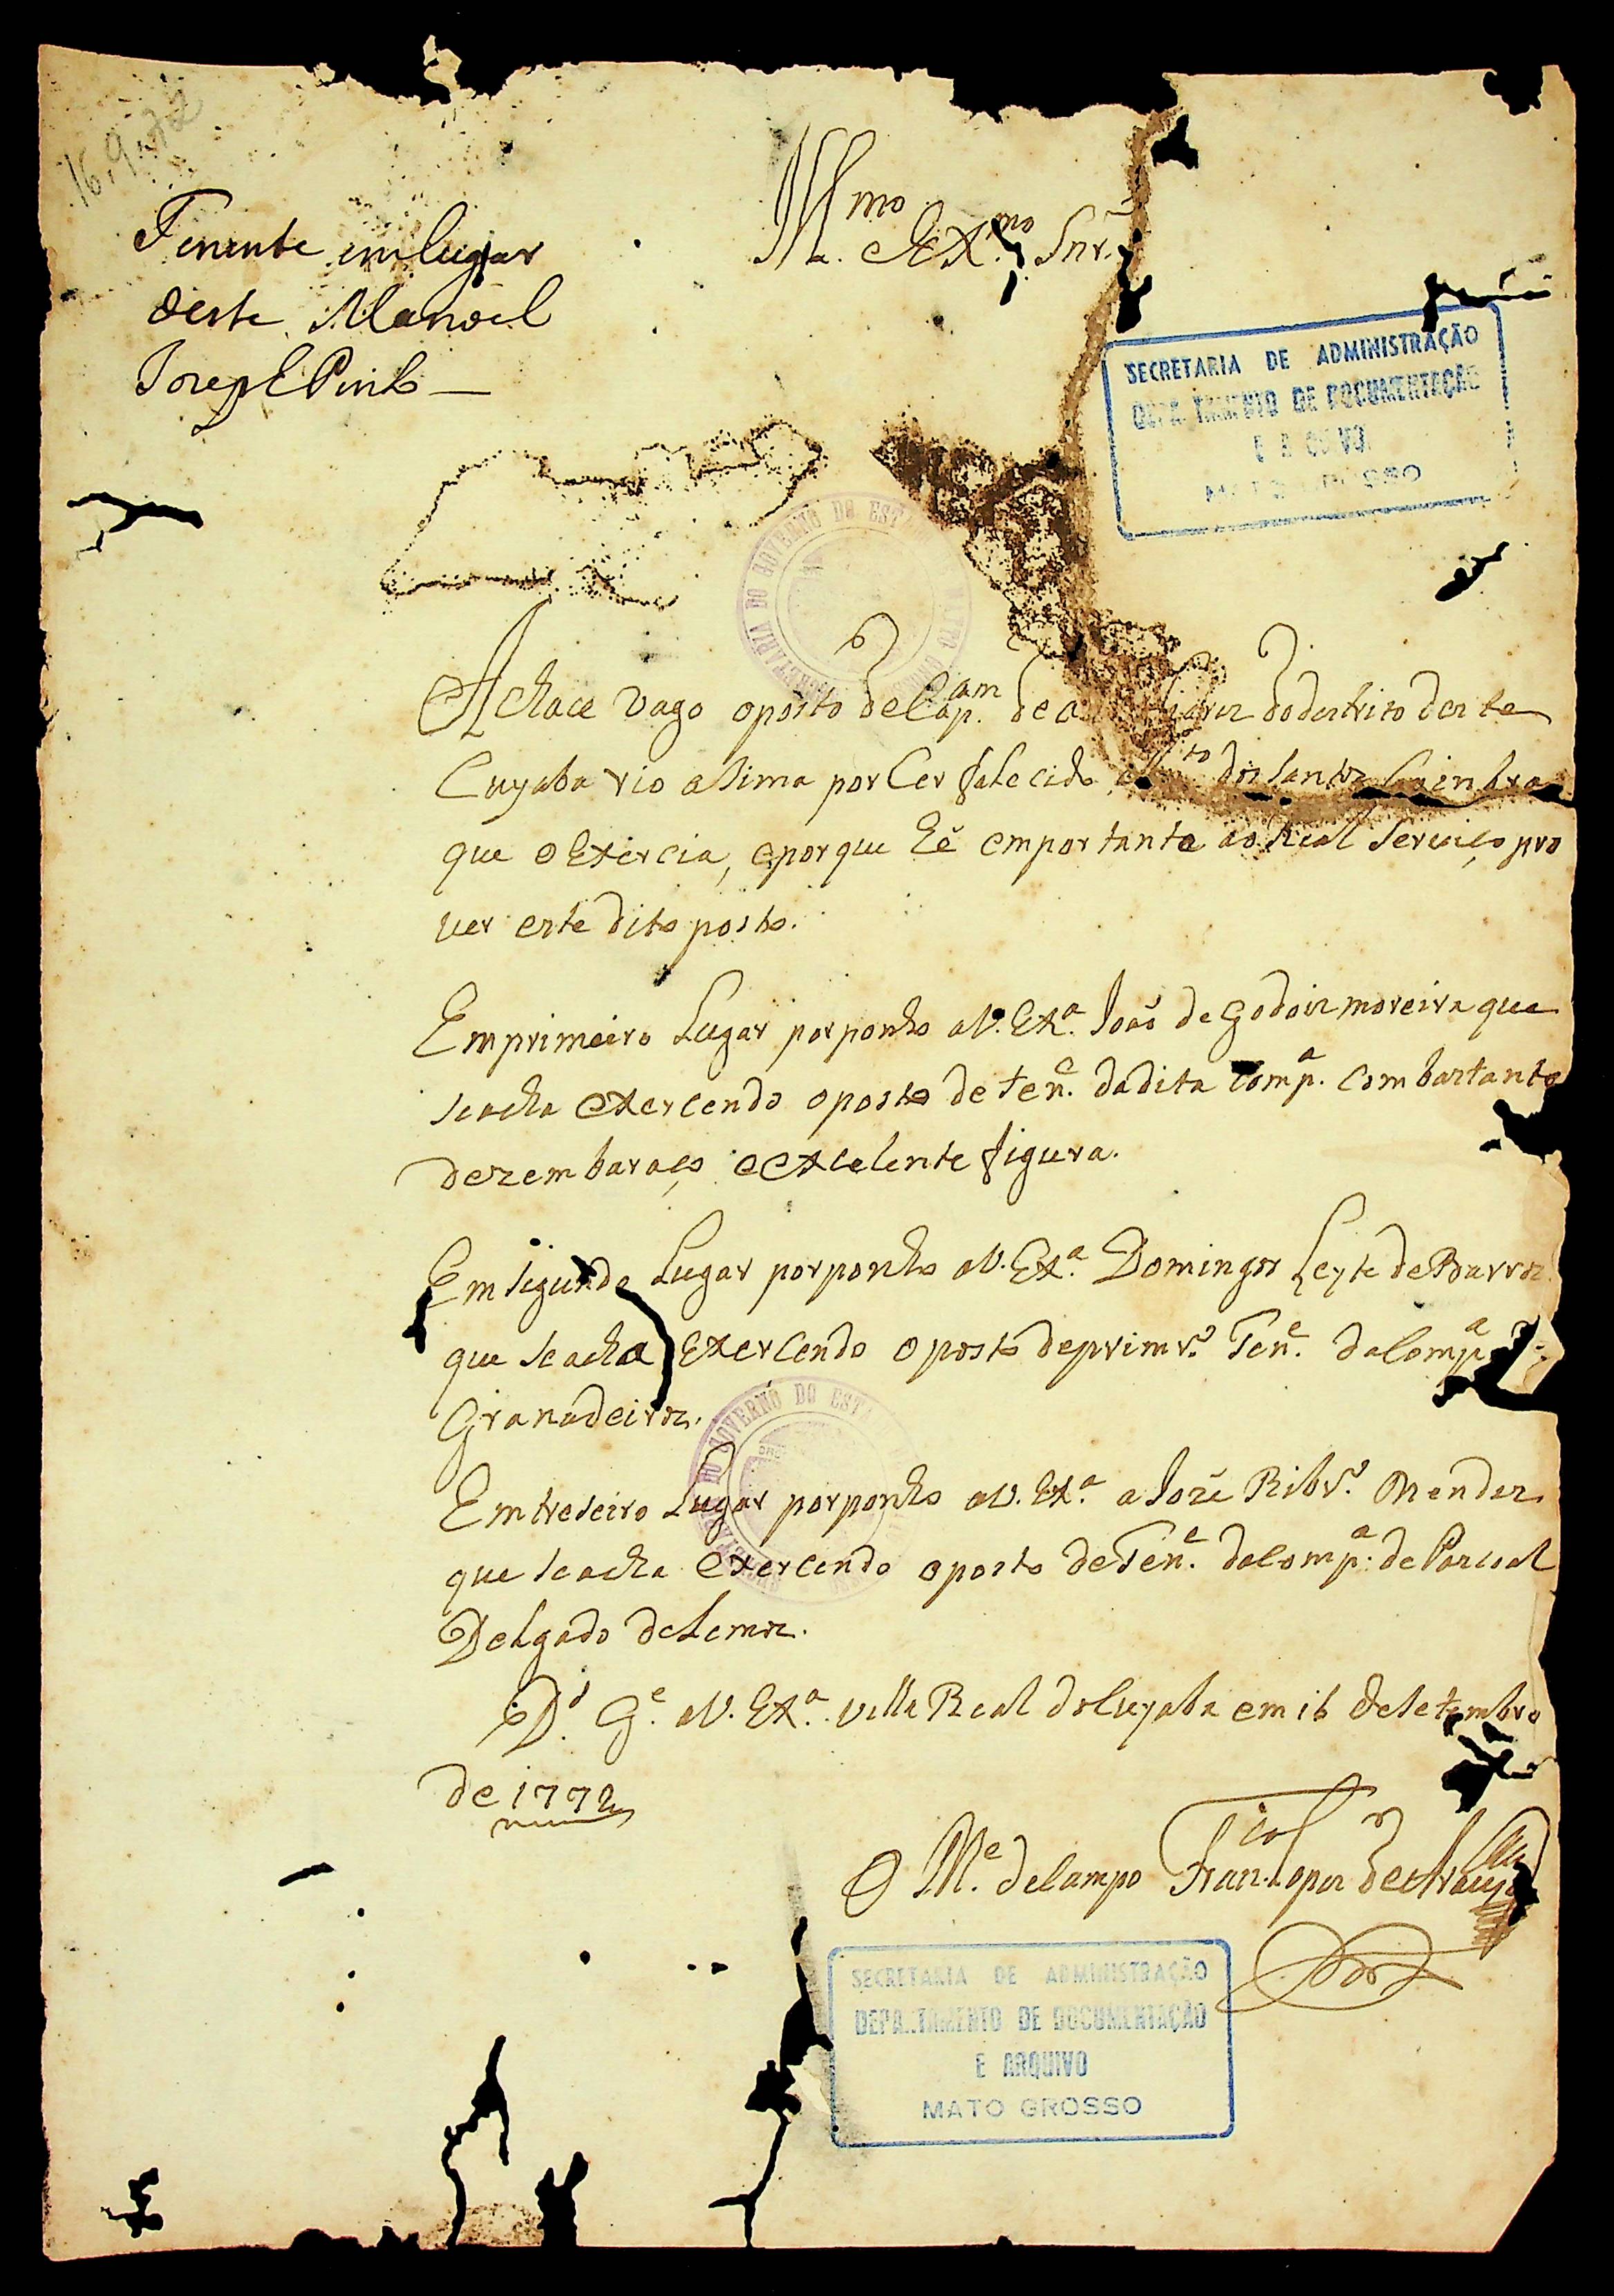 16,9,72
Tenente em lugar
deste Manoel
Jozeph Pinto —
Ill.mo e Ex.mo Snr.
SECRETARIA DE ADMINISTRAÇÃO
DEPARTAMENTO DE DOCUMENTAÇÃO
E ARQUIVO
MATO GROSSO
SECRETARIA DO GOVERNO DO ESTADO
Achace vago oposto de Cap.am de do destrito desta
Cuyaba rio asima por Cer falecido dos Santos Coimbra
que o Exercia, eporque hé emportante ao Real Serviço pro
ver este dito posto.
Emprimeiro Lugar porponho aV. Ex.a João de Godois moreira que
seacha exercendo oposto de Ten.e dadita Comp.a Combastante
dezembaraço eexcelente figura.
Emsegundo Lugar porponho aV. Ex.a Domingos Leyte de Barros
que seacha Exercendo oposto deprimr.o Ten.e daComp.a
Granadeiros.
Emterseiro Lugar porponho aV. Ex.a aJozé Ribr.o Mendes
que seacha exercendo oposto deTen.e daComp.a de Pascoal
Delgado deLemos.
D.s G.e aV. Ex.a Villa Real doCuyaba em 16 de Setembro
de 1772
O M.e deCampo Fran.co Lopes de Araujo
SECRETARIA DO GOVERNO DO ESTADO
SECRETARIA DE ADMINISTRAÇÃO
DEPARTAMENTO DE DOCUMENTAÇÃO
E ARQUIVO
MATO GROSSO